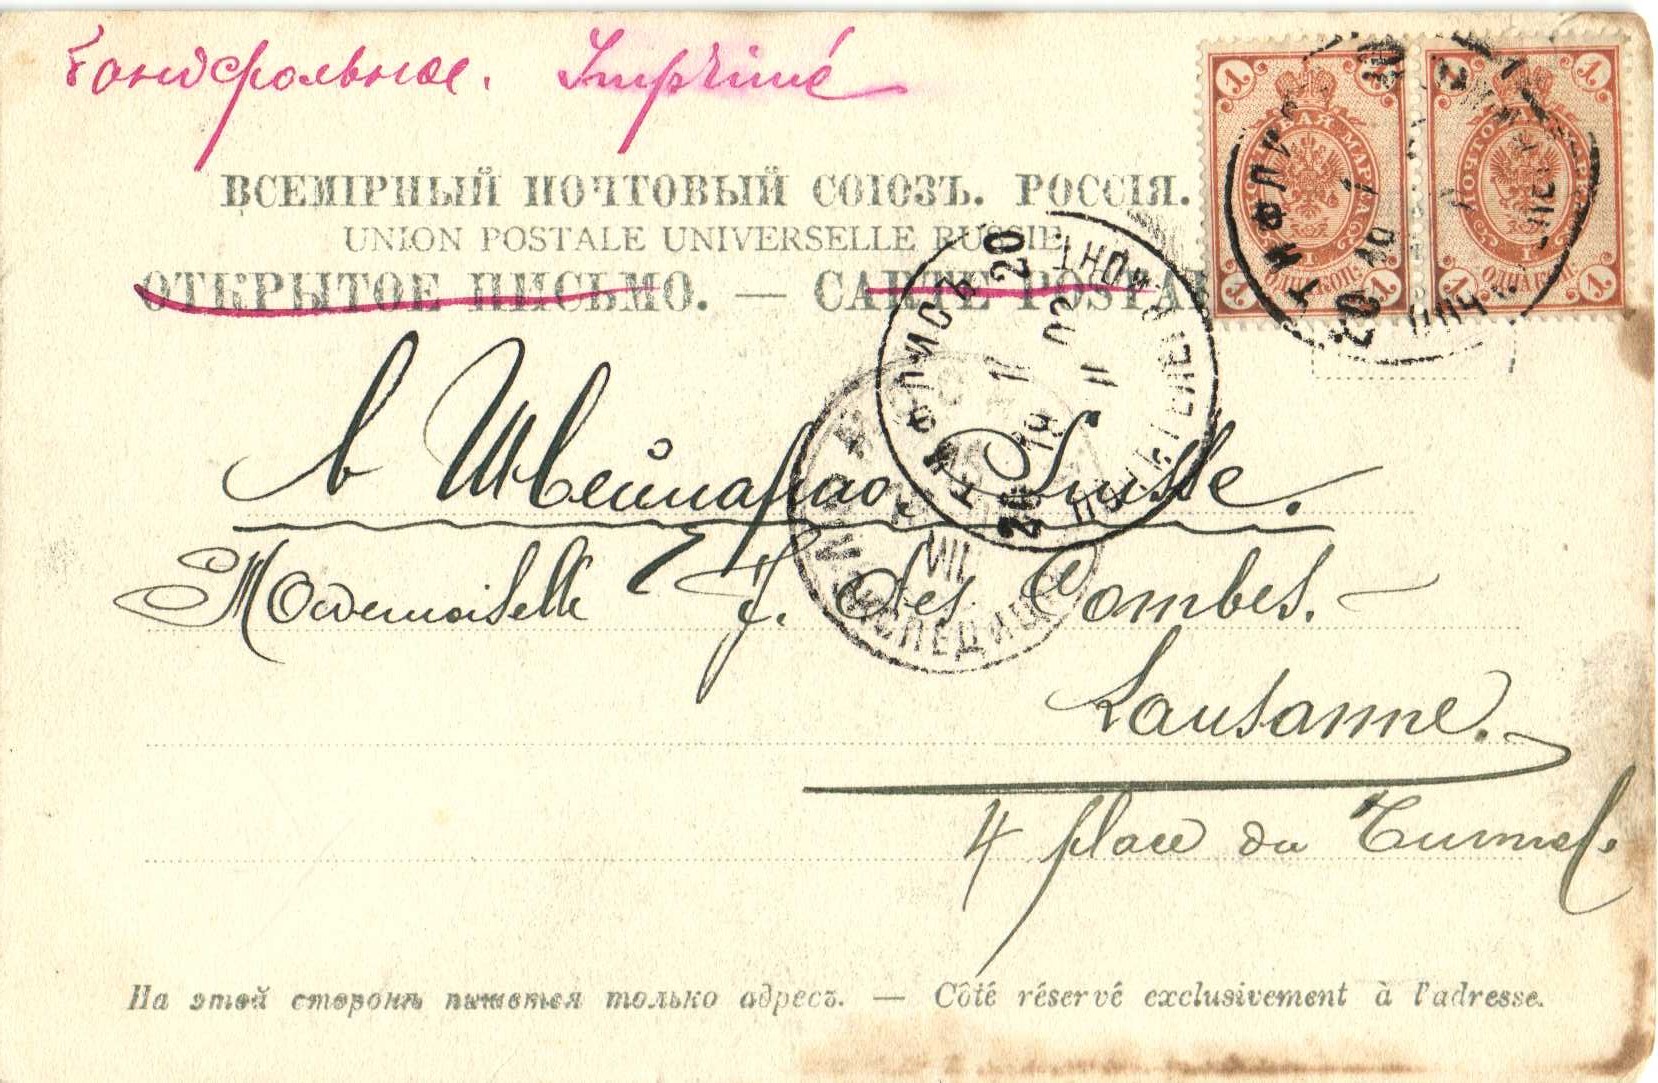 Бандерольное. Imprimé
ВСЕМІРНЫЙ ПОЧТОВЫЙ СОЮЗЪ. РОССІЯ.
UNION POSTALE UNIVERSELLE RUSSIE
ОТКРЫТОЕ ПИСЬМО. — CARTE POSTAL
1 1 1 1
ПОЧТОВАЯ МАРКА
ТИФЛИСЪ 20
11 02
19 11
20
ЭКСПЕДИЦ
VIII
в Швейцарію. Suisse.
Mademoiselle J. des Combes.
Lausanne.
4 place du Tunnel.
На этой сторонѣ пишется только адресъ. — Côté réservé exclusivement à l'adresse.